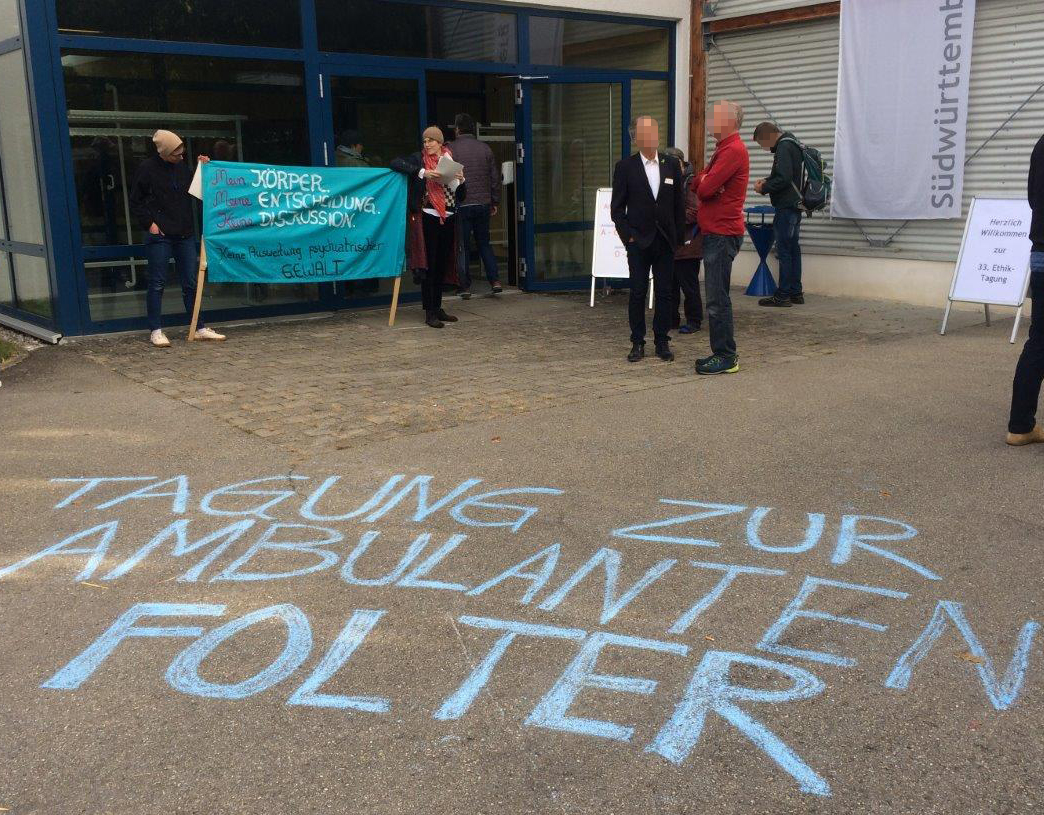 Mein KÖRPER.
Meine ENTSCHEIDUNG.
Keine DISKUSSION.
Keine Ausweitung psychiatrischer
GEWALT
Südwürttemb
Herzlich
Willkommen
zur
33. Ethik-
Tagung
TAGUNG ZUR
AMBULANTEN
FOLTER